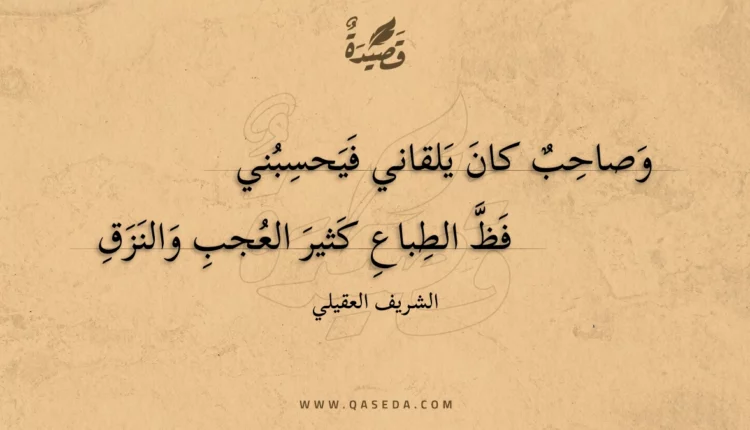 قَصِيْدَةٌ
وَصاحِبٌ كانَ يَلقاني فَيَحسِبُني
فَظَّ الطِباعِ كَثيرَ العُجبِ وَالنَزَقِ
الشريف العقيلي
WWW.QASEDA.COM